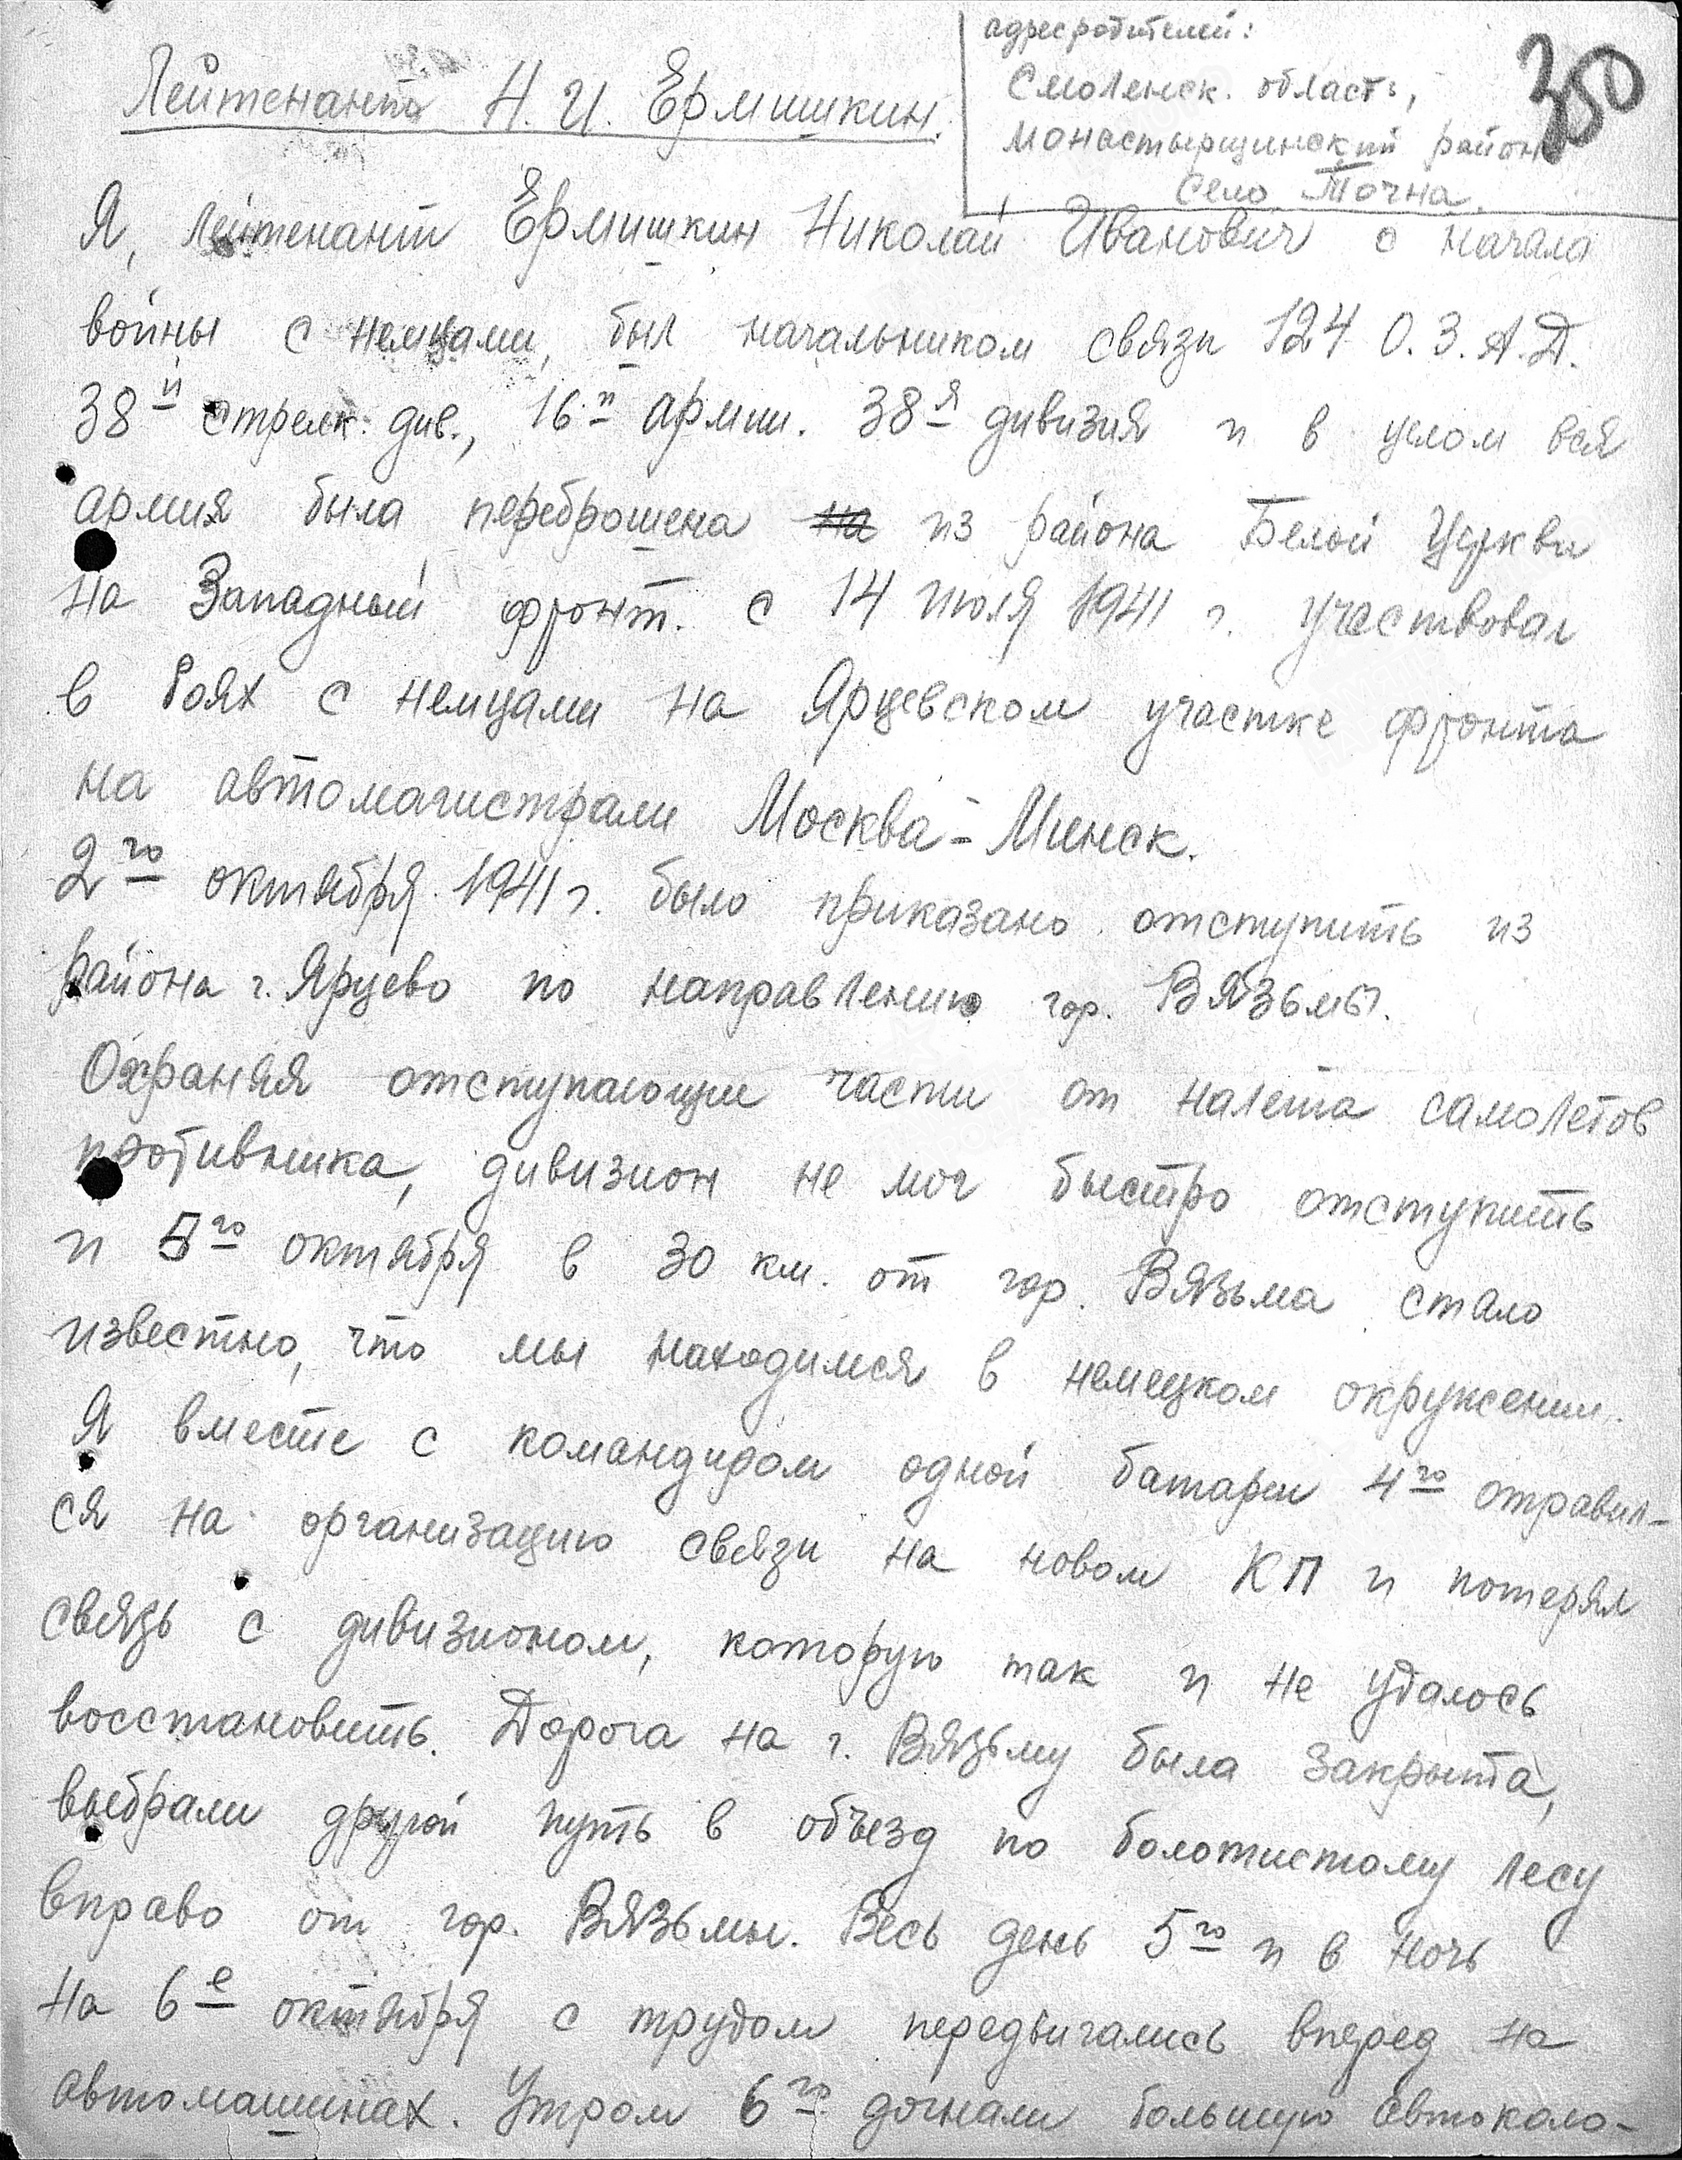 адрес родителей:
Смоленск. область,
Монастырщинский район
село Точна.
350
Лейтенант Н. И. Ермишкин.
Я, лейтенант Ермишкин Николай Иванович с начала
войны с немцами, был начальником связи 124 О.З.А.Д.
38й стрелк. див., 16й армии. 38я дивизия и в целом вся
армия была переброшена на из района Белой Церкви
на Западный фронт. с 14 июля 1941 г. участвовал
в боях с немцами на Ярцевском участке фронта
на автомагистрали Москва - Минск.
2го октября 1941 г. было приказано отступить из
района г. Ярцево по направлению гор. Вязьмы.
Охраняя отступающие части от налета самолетов
противника, дивизион не мог быстро отступить
и 5го октября в 30 км. от гор. Вязьма стало
известно, что мы находимся в немецком окружении.
Я вместе с командиром одной батареи 4го отправил-
ся на организацию связи на новом КП и потерял
связь с дивизионом, которую так и не удалось
восстановить. Дорога на г. Вязьму была закрыта,
выбрали другой путь в объезд по болотистому лесу
вправо от гор. Вязьмы. Весь день 5го и в ночь
на 6е октября с трудом передвигались вперед на
автомашинах. Утром 6го догнали большую автоколо-